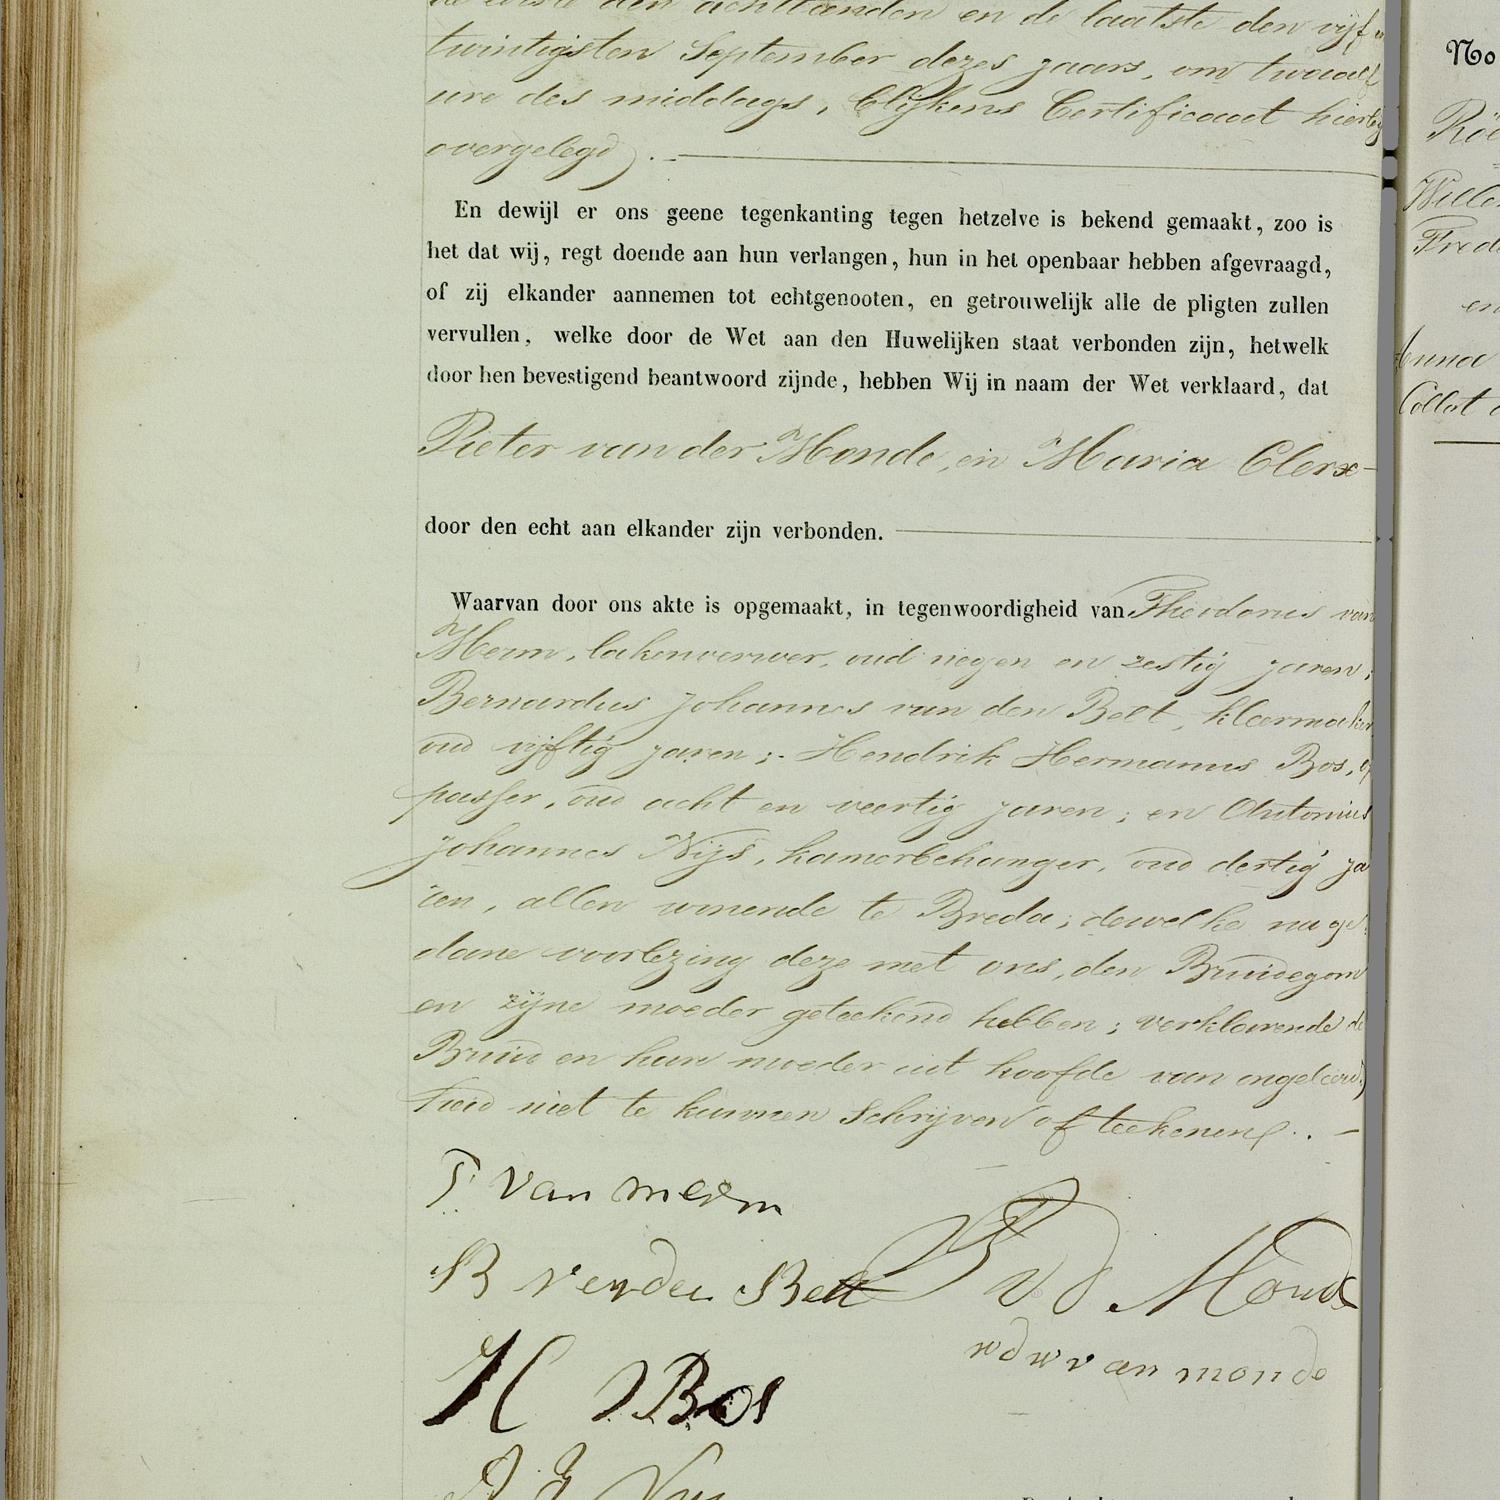 de eerste den achttienden en de laatste den vijf
twintigsten September dezes jaars, om twaalf
ure des middags, blijkens Certificaat hierbij
overgelegd).
En dewijl er ons geene tegenkanting tegen hetzelve is bekend gemaakt, zoo is
het dat wij, regt doende aan hun verlangen, hun in het openbaar hebben afgevraagd,
of zij elkander aannemen tot echtgenooten, en getrouwelijk alle de pligten zullen
vervullen, welke door de Wet aan den Huwelijken staat verbonden zijn, hetwelk
door hen bevestigend beantwoord zijnde, hebben Wij in naam der Wet verklaard, dat
Pieter van der Monde, en Maria Clerx
door den echt aan elkander zijn verbonden.
Waarvan door ons akte is opgemaakt, in tegenwoordigheid van Theodorus van
Merm, lakenverwer, oud negen en zestig jaren;
Bernardus Johannes van den Belt, kleermaker
oud vijftig jaren; Hendrik Hermanus Bos, op
passer, oud acht en veertig jaren; en Antonius
Johannes Nijs, kamerbehanger, oud dertig ja
ren, allen wonende te Breda; dewelke na ge
dane voorlezing deze met ons, den Bruidegom
en zijne moeder geteekend hebben; verklarende de
Bruid en hun moeder uit hoofde van ongeleerd
heid niet te kunnen schrijven of teekenen.
T van merm
B van den Belt
P v d Monde
wd w van monde
H H Bos
A J Nijs
No
Wille
Fred
en
Anna
Collot d